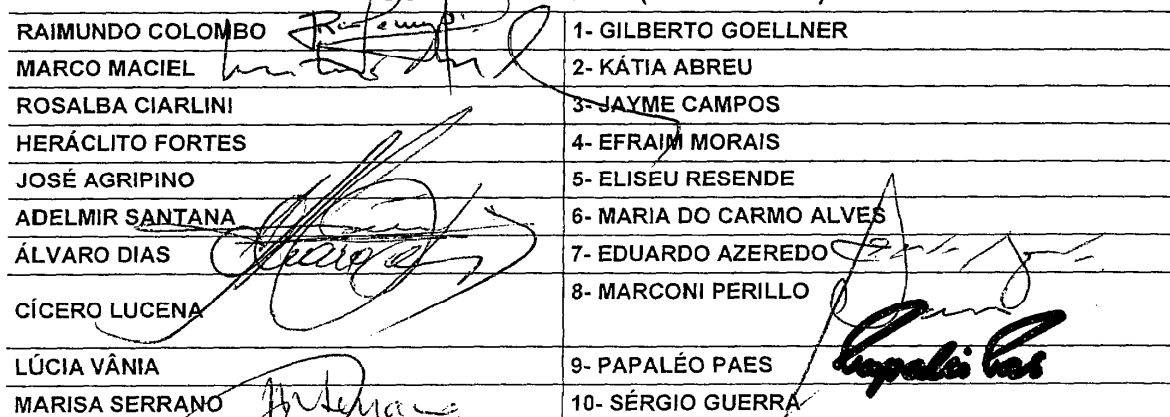 RAIMUNDO COLOMBO 1- GILBERTO GOELLNER
MARCO MACIEL 2- KÁTIA ABREU
ROSALBA CIARLINI 3- JAYME CAMPOS
HERÁCLITO FORTES 4- EFRAIM MORAIS
JOSÉ AGRIPINO 5- ELISEU RESENDE
ADELMIR SANTANA 6- MARIA DO CARMO ALVES
ÁLVARO DIAS 7- EDUARDO AZEREDO
CÍCERO LUCENA 8- MARCONI PERILLO
LÚCIA VÂNIA 9- PAPALÉO PAES Papaléo Paes
MARISA SERRANO 10- SÉRGIO GUERRA